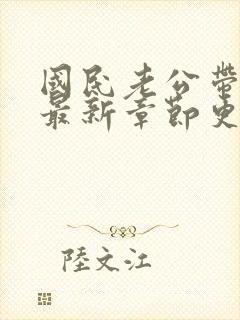 國民老公帶
最新章節更
陸文江